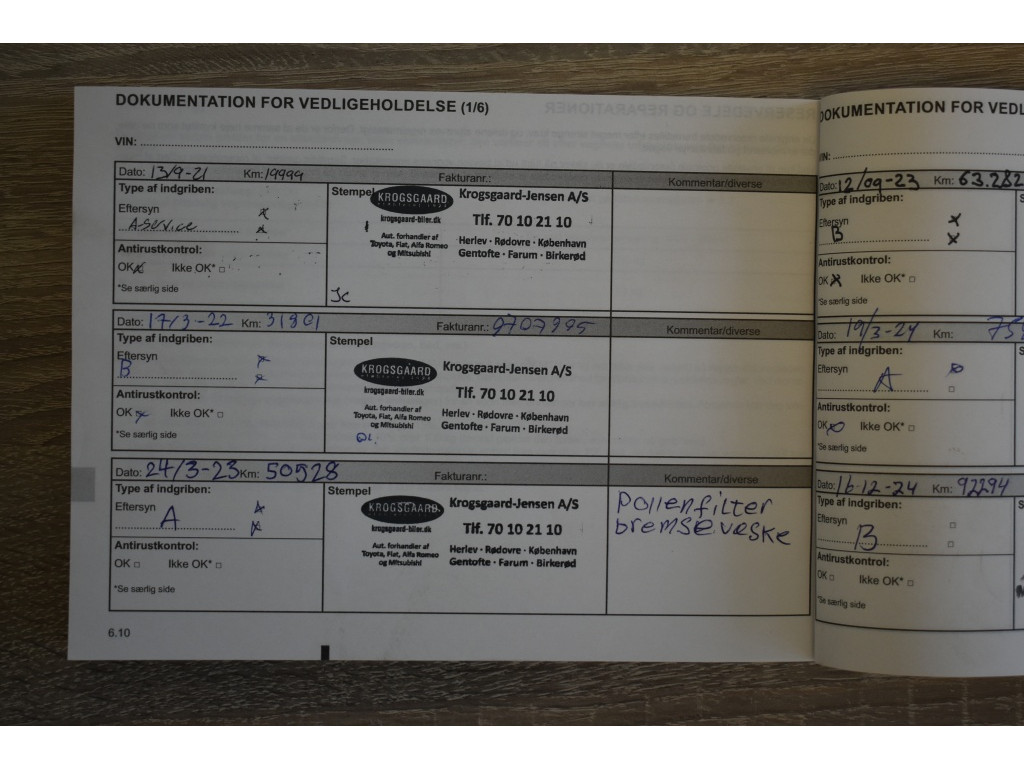 DOKUMENTATION FOR VEDLIGEHOLDELSE (1/6)
VIN:
Dato: 13/9-21 Km: 19999 Fakturanr.: Kommentar/diverse
Type af indgriben:
Eftersyn
A-service
Antirustkontrol:
OK Ikke OK*
*Se særlig side
Stempel
KROGSGAARD
krogsgaard-biler.dk
Aut. forhandler af
Toyota, Fiat, Alfa Romeo
og Mitsubishi
Krogsgaard-Jensen A/S
Tlf. 70 10 21 10
Herlev · Rødovre · København
Gentofte · Farum · Birkerød
Dato: 17/3-22 Km: 31801 Fakturanr.: 9707995 Kommentar/diverse
Type af indgriben:
Eftersyn
B
Antirustkontrol:
OK Ikke OK*
*Se særlig side
Stempel
KROGSGAARD
krogsgaard-biler.dk
Aut. forhandler af
Toyota, Fiat, Alfa Romeo
og Mitsubishi
Krogsgaard-Jensen A/S
Tlf. 70 10 21 10
Herlev · Rødovre · København
Gentofte · Farum · Birkerød
Dato: 24/3-23 Km: 50528 Fakturanr.: Kommentar/diverse
Type af indgriben:
Eftersyn
A
Antirustkontrol:
OK Ikke OK*
*Se særlig side
Stempel
KROGSGAARD
krogsgaard-biler.dk
Aut. forhandler af
Toyota, Fiat, Alfa Romeo
og Mitsubishi
Krogsgaard-Jensen A/S
Tlf. 70 10 21 10
Herlev · Rødovre · København
Gentofte · Farum · Birkerød
Pollenfilter
bremsevæske
6.10
DOKUMENTATION FOR VEDL
VIN:
Dato: 12/09-23 Km: 63.282
Type af indgriben:
Eftersyn
B
Antirustkontrol:
OK Ikke OK*
*Se særlig side
Dato: 19/3-24 Km: 75
Type af indgriben:
Eftersyn
A
Antirustkontrol:
OK Ikke OK*
*Se særlig side
Dato: 16-12-24 Km: 92294
Type af indgriben:
Eftersyn
B
Antirustkontrol:
OK Ikke OK*
*Se særlig side